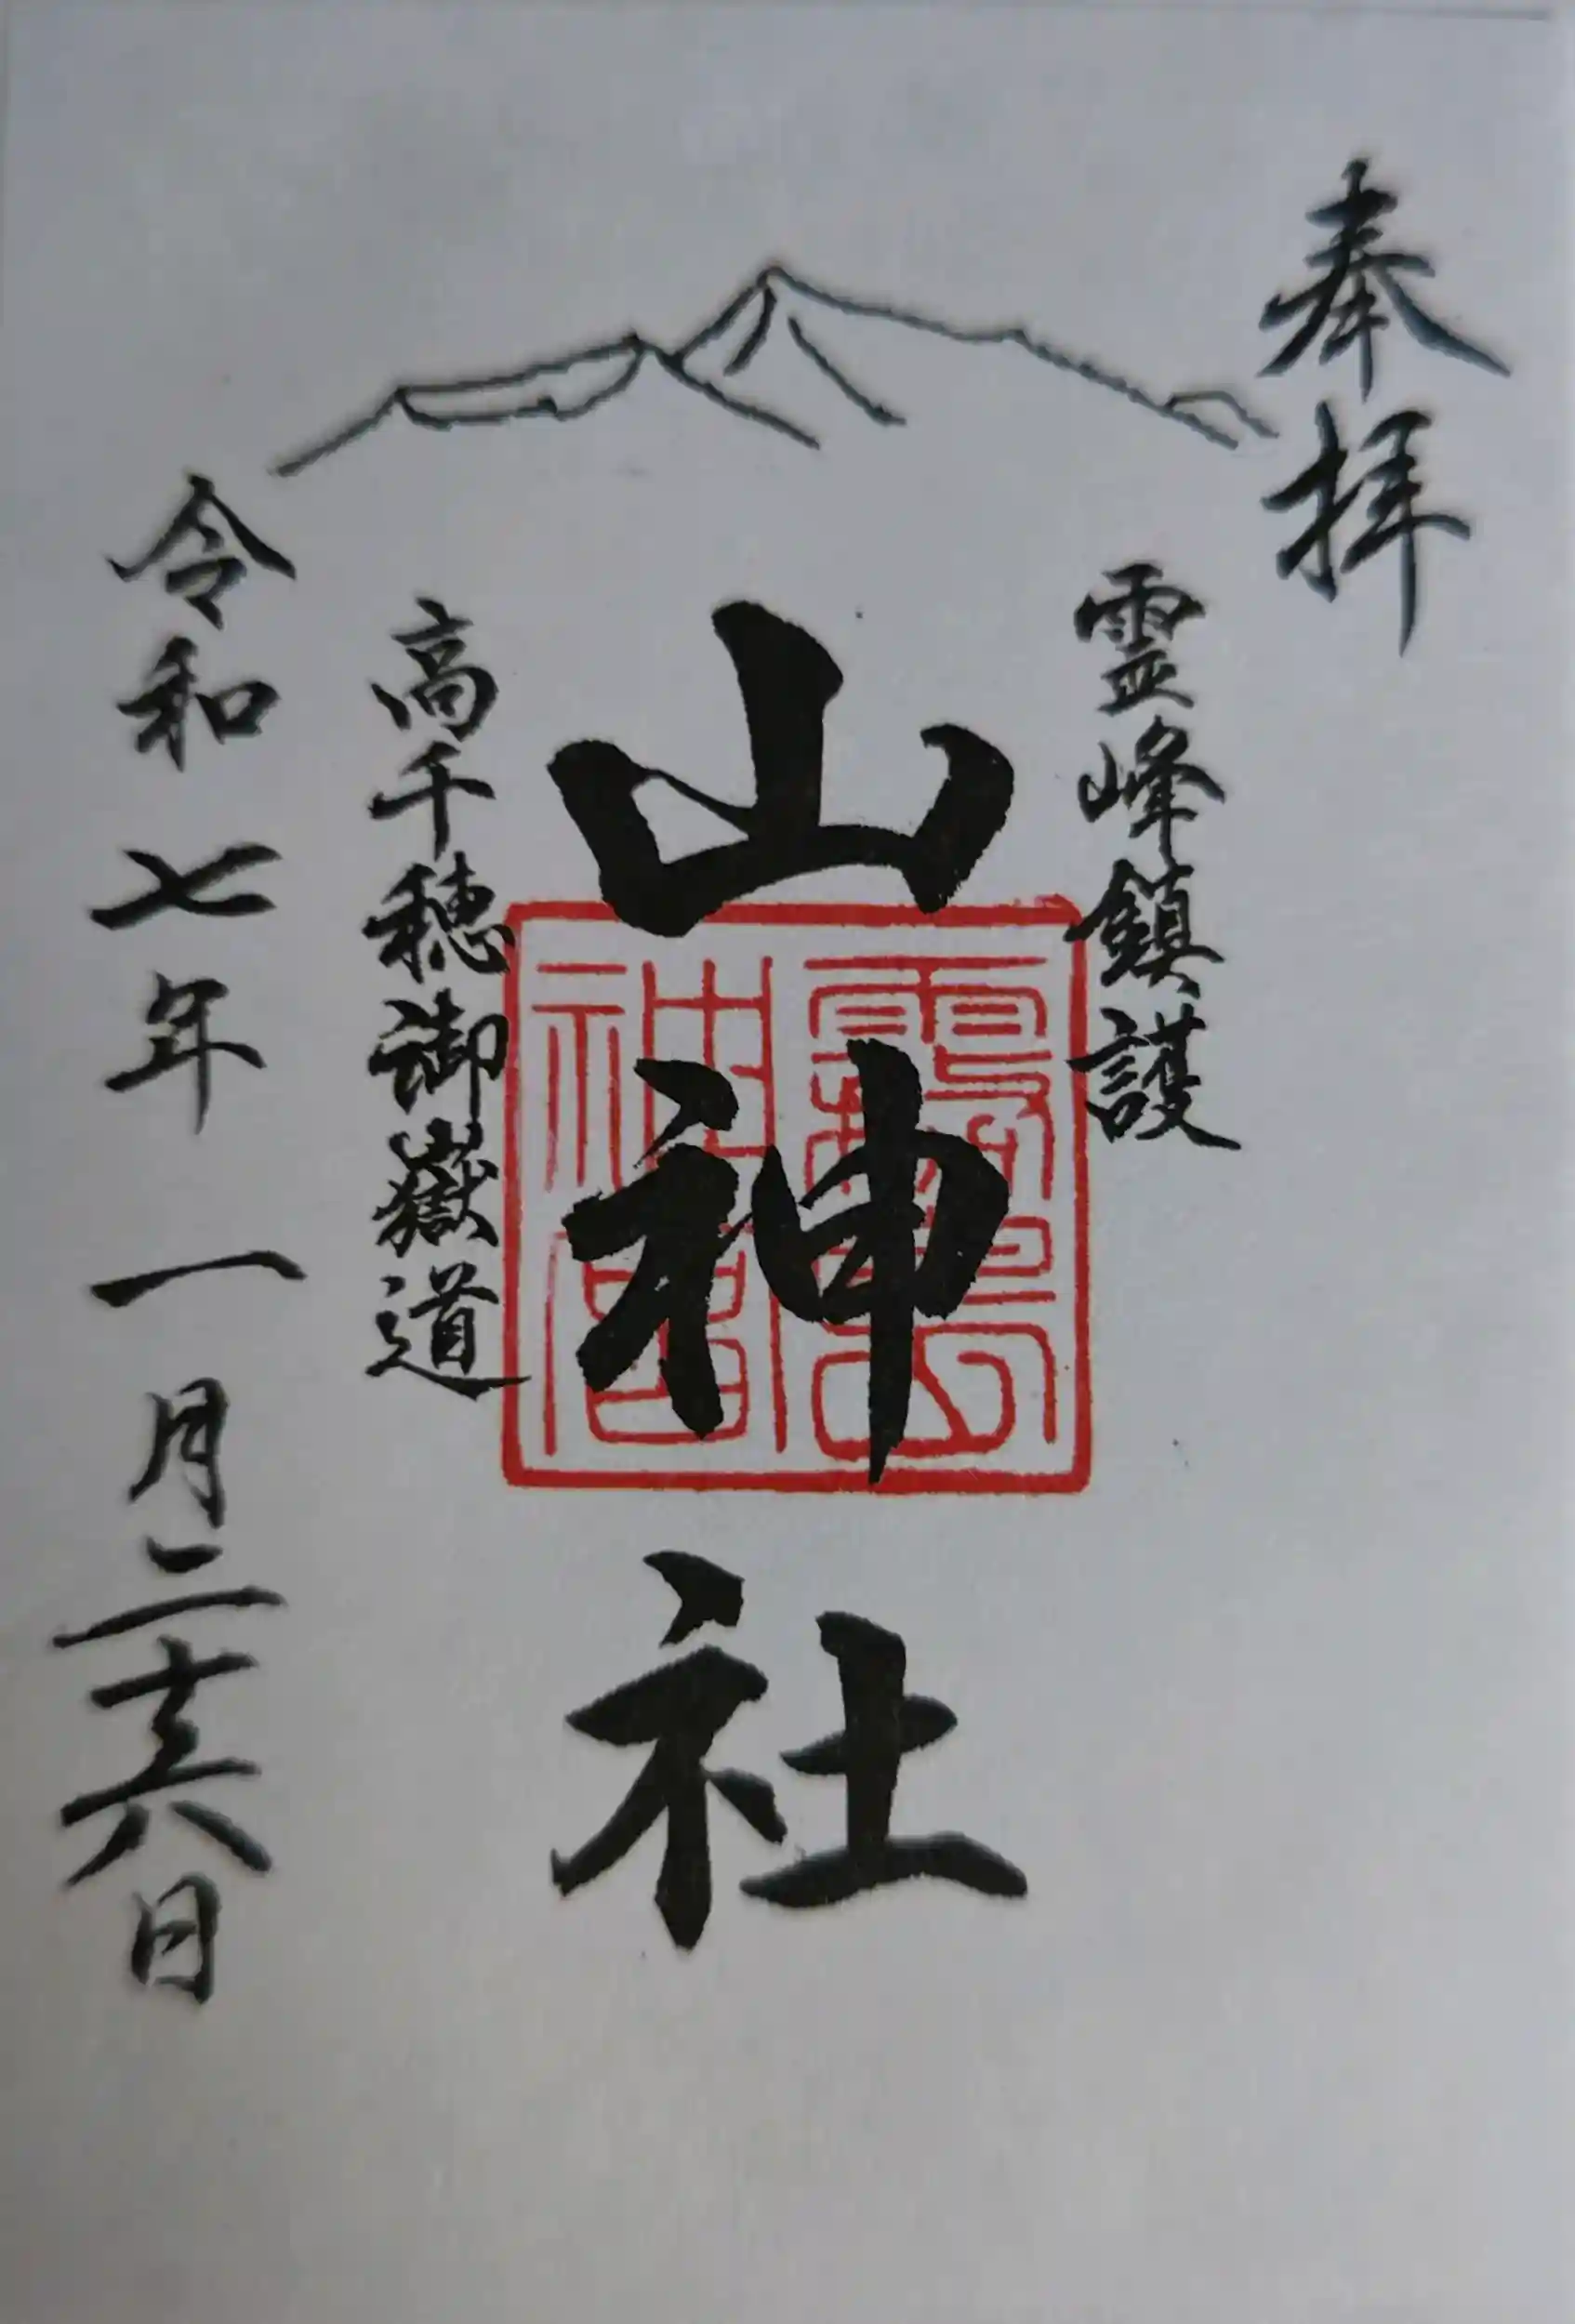 奉拝
霊峰鎮護
山神社
霧島
神宮
高千穂御嶽道
令和七年一月二十六日